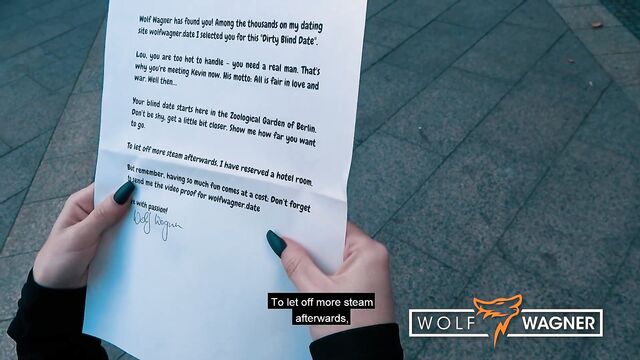 Wolf Wagner has found you! Among the thousands on my dating
site wolfwagner.date I selected you for this "Dirty Blind Date".
Lou, you are too hot to handle - you need a real man. That's
why you're meeting Kevin now. His motto: All is fair in love and
war. Well then...
Your blind date starts here in the Zoological Garden of Berlin.
Don't be shy, get a little bit closer. Show me how far you want
to go.
To let off more steam afterwards, I have reserved a hotel room.
But remember, having so much fun comes at a cost: Don't forget
send me the video proof for wolfwagner.date
with passion!
Wolf Wagner
To let off more steam
afterwards,
WOLF WAGNER